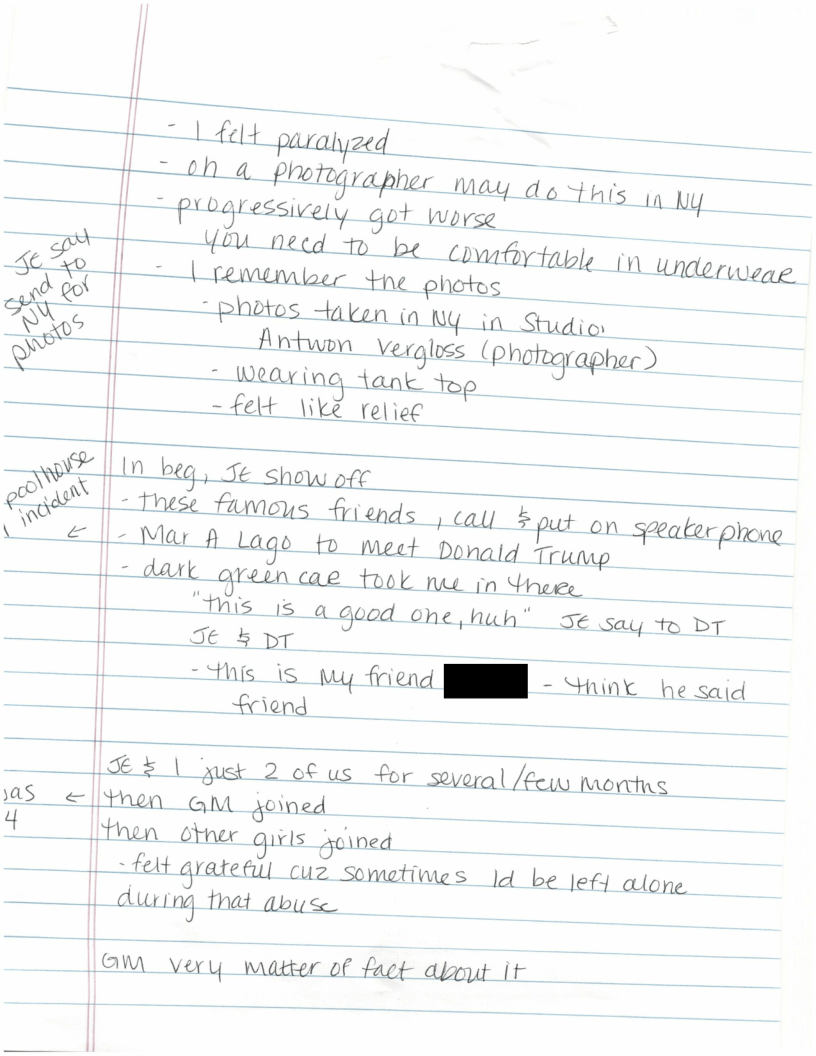 - I felt paralyzed
- oh a photographer may do this in NY
- progressively got worse
you need to be comfortable in underwear
JE say
send to
NY for
photos
- I remember the photos
- photos taken in NY in Studio.
Antwon vergloss (photographer)
- wearing tank top
- felt like relief
poolhouse
incident
←
In beg, JE show off
- these famous friends, call & put on speakerphone
- Mar A Lago to meet Donald Trump
- dark green cae took me in there
"this is a good one, huh" JE say to DT
JE & DT
- this is my friend - think he said
friend
JE & I just 2 of us for several/few months
as ← then GM joined
4
then other girls joined
- felt grateful cuz sometimes Id be left alone
during that abuse
GM very matter of fact about it